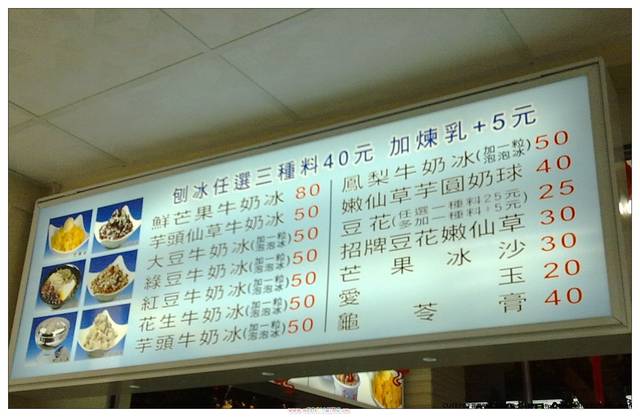 刨冰任選三種料40元 加煉乳+5元
鮮芒果牛奶冰 80
芋頭仙草牛奶冰 50
大豆牛奶冰(加一粒泡泡冰) 50
綠豆牛奶冰(加一粒泡泡冰) 50
紅豆牛奶冰(加一粒泡泡冰) 50
花生牛奶冰(加一粒泡泡冰) 50
芋頭牛奶冰(加一粒泡泡冰) 50
鳳梨牛奶冰(加一粒泡泡冰) 50
嫩仙草芋圓奶球 40
豆花(任選一種料25元 多加一種料+5元) 25
招牌豆花嫩仙草 30
芒果冰沙 30
愛玉 20
龜苓膏 40